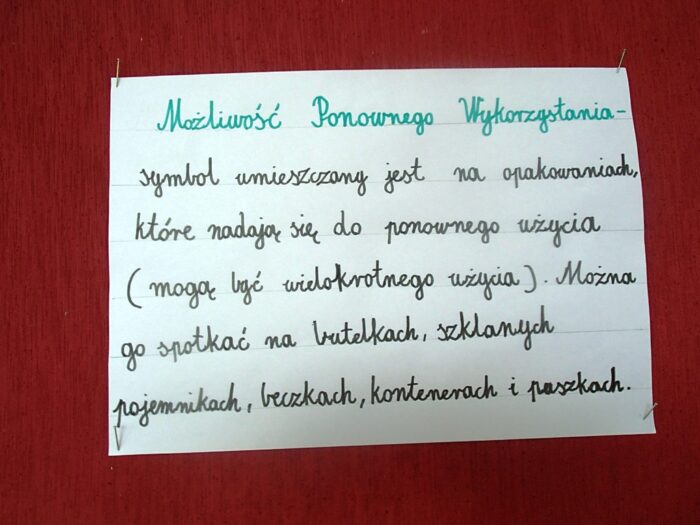 Możliwość Ponownego Wykorzystania -
symbol umieszczany jest na opakowaniach,
które nadają się do ponownego użycia
( mogą być wielokrotnego użycia ). Można
go spotkać na butelkach, szklanych
pojemnikach, beczkach, kontenerach i puszkach.